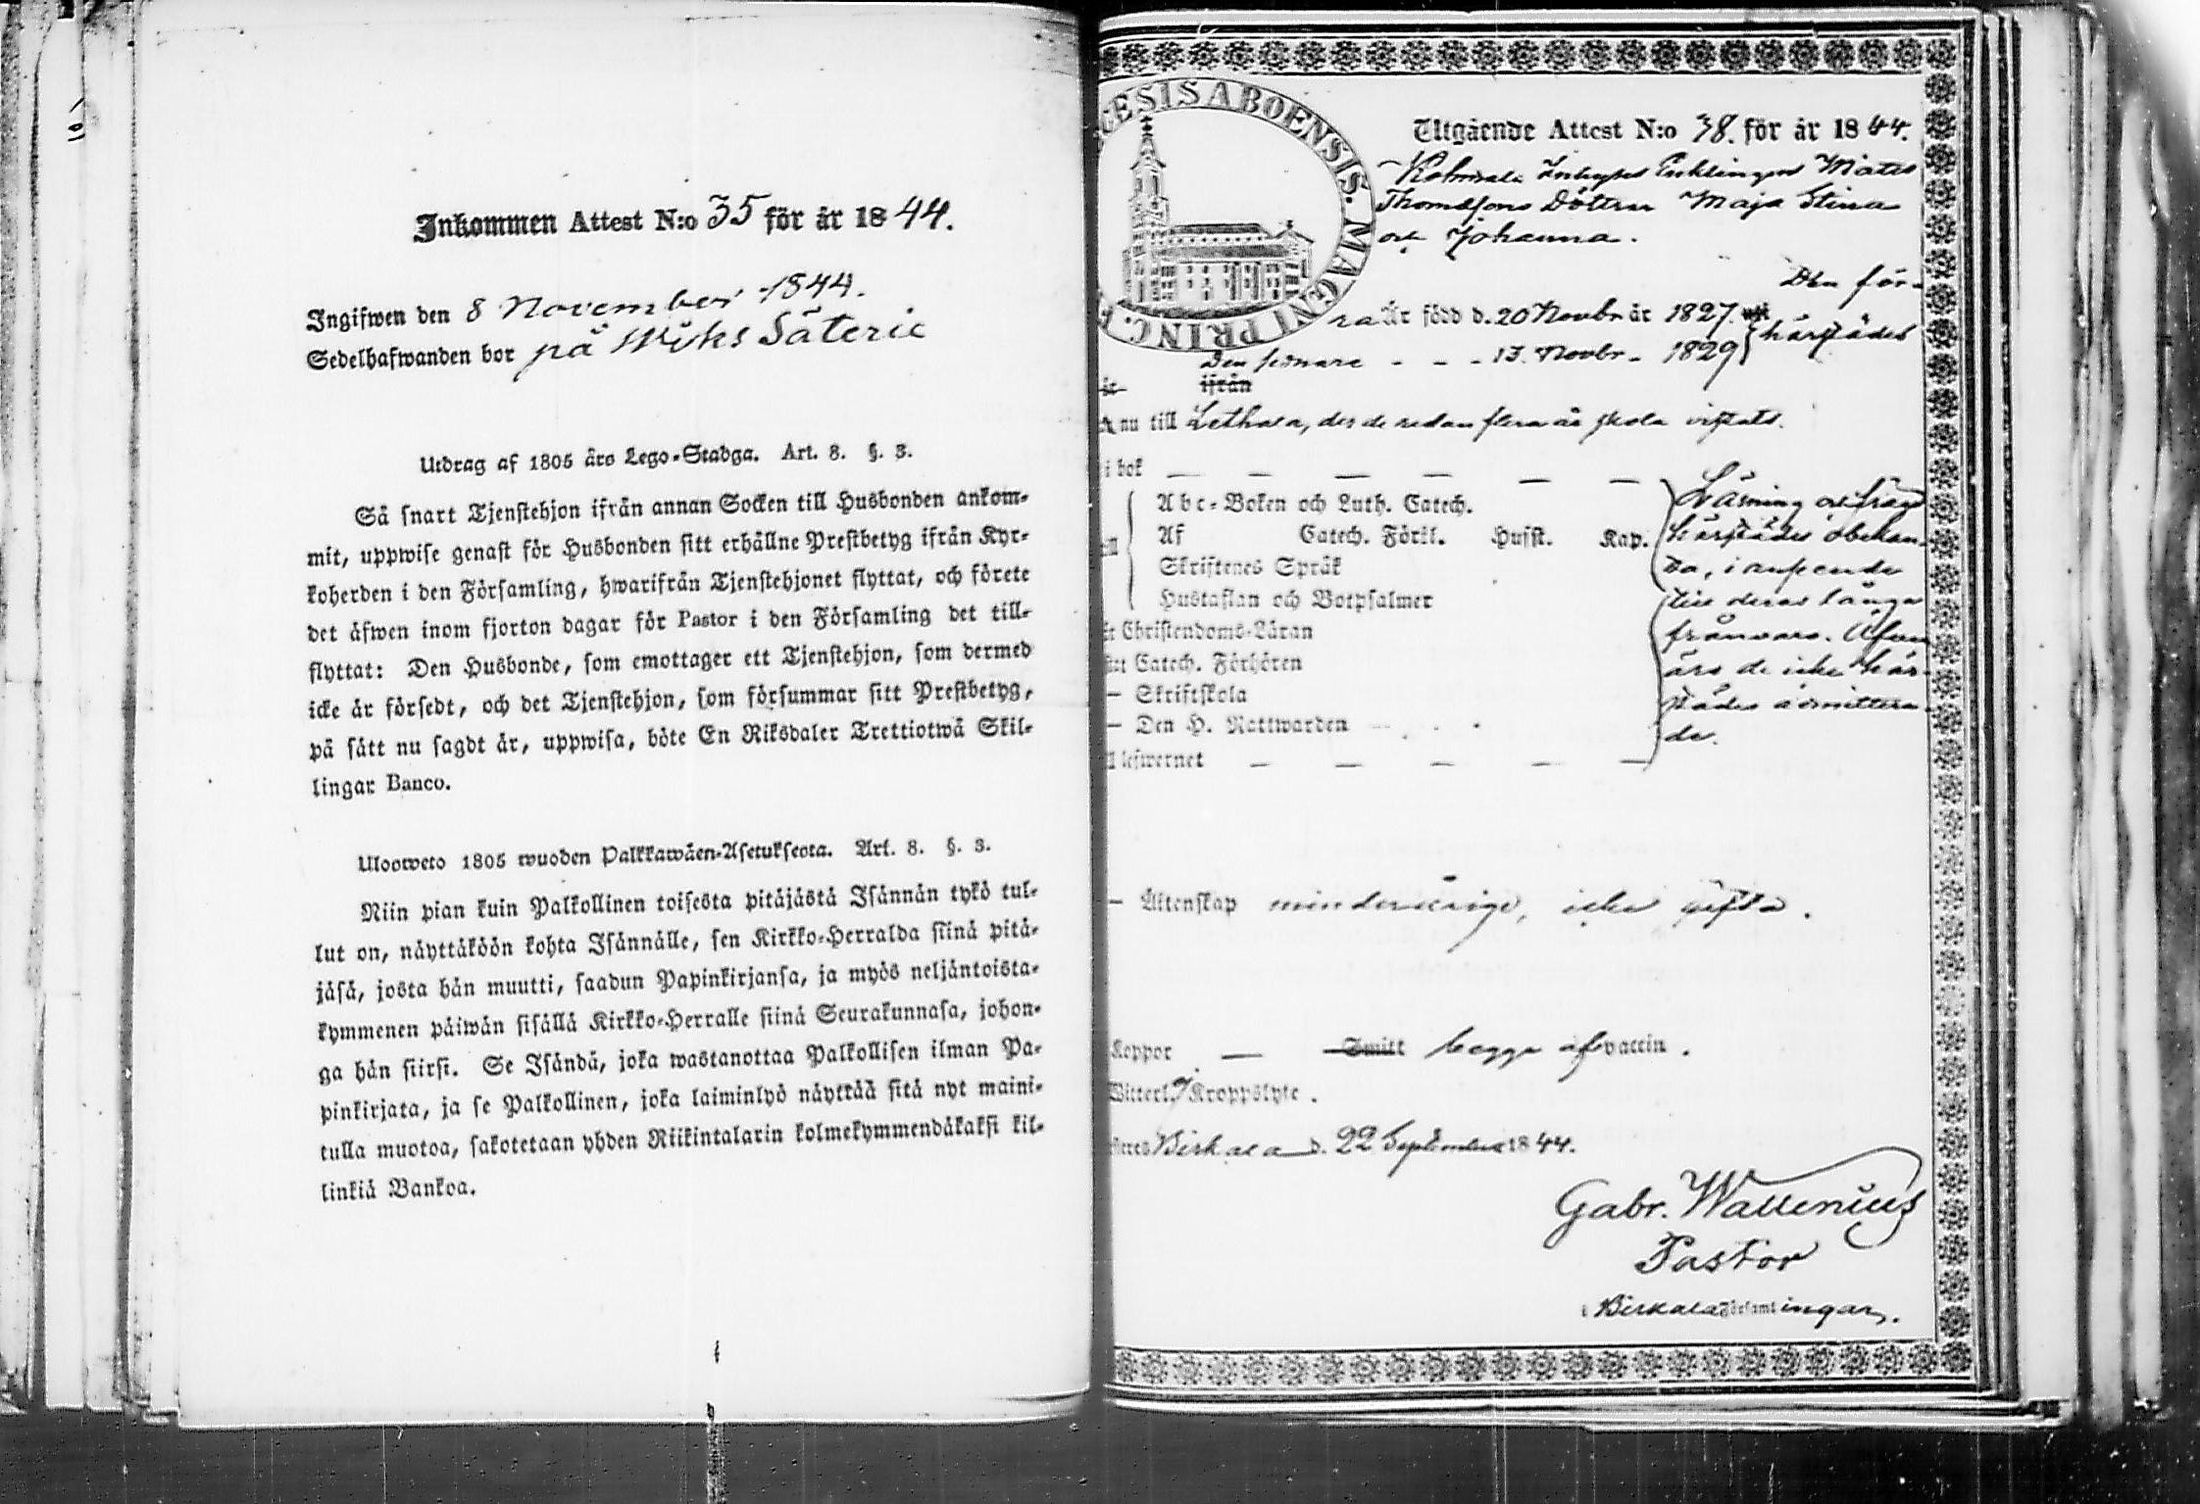 Inkommen Attest N:o 35 för år 1844.
Ingifwen den 8 November 1844.
Sedelhafwanden bor på Wiks Säterie
Utdrag af 1805 års Lego-Stadga. Art. 8. §. 3.
Så snart Tjenstehjon ifrån annan Socken till Husbonden ankom-
mit, uppwise genast för Husbonden sitt erhållne Prestbetyg ifrån Kyr-
koherden i den Församling, hwarifrån Tjenstehjonet flyttat, och förete
det äfwen inom fjorton dagar för Pastor i den Församling det till-
flyttat: Den Husbonde, som emottager ett Tjenstehjon, som dermed
icke är försedt, och det Tjenstehjon, som försummar sitt Prestbetyg,
på sätt nu sagdt är, uppwisa, böte En Riksdaler Trettiotwå Skil-
lingar Banco.
Ulosweto 1805 wuoden Palkkawäen-Asetuksesta. Art. 8. §. 3.
Niin pian kuin Palkollinen toisesta pitäjästä Isännän tykö tul-
lut on, näyttäköön kohta Isännälle, sen Kirkko-Herralda siinä pitä-
jäsä, josta hän muutti, saadun Papinkirjansa, ja myös neljäntoista-
kymmenen päiwän sisällä Kirkko-Herralle siinä Seurakunnasa, johon-
ga hän siirsi. Se Isändä, joka wastanottaa Palkollisen ilman Pa-
pinkirjata, ja se Palkollinen, joka laiminlyö näyttää sitä nyt maini-
tulla muotoa, sakotetaan yhden Riikintalarin kolmekymmendäkaksi kil-
linkiä Bankoa.
CESIS ABOENSIS. MAGNI PRINC. F
Utgående Attest N:o 38. för år 1844.
Inhyses Enklingen Matts
Thomassons Döttrar Maja Stina
och Johanna.
Den för-
ra Är född d. 20 Novbr år 1827.
härstädes
Den sednare - - - 13. Novbr - 1829
ifrån
nu till Lethala, der de redan flera år skola vistats.
i bok — — — — — —
Abc-Boken och Luth. Catech.
Af Catech. Förkl. Husst. Kap.
Skriftenes Språk
Hustaflan och Botpsalmer
Christendoms-Läran
Catech. Förhören
— Skriftskola
— Den H. Nattwarden
lefwernet — — — — —
Läsning och
härstädes obekan-
da, i anseende
till deras långa
frånvaro. Äfven
äro de icke här-
städes admittera-
de.
— Äktenskap minderårige, icke gifta.
Koppor — Smitt begge af vaccin.
Witterl. Kroppslyte.
Birkala d. 22 September 1844.
Gabr. Wallenius
Pastor
i Birkala Församlingar.